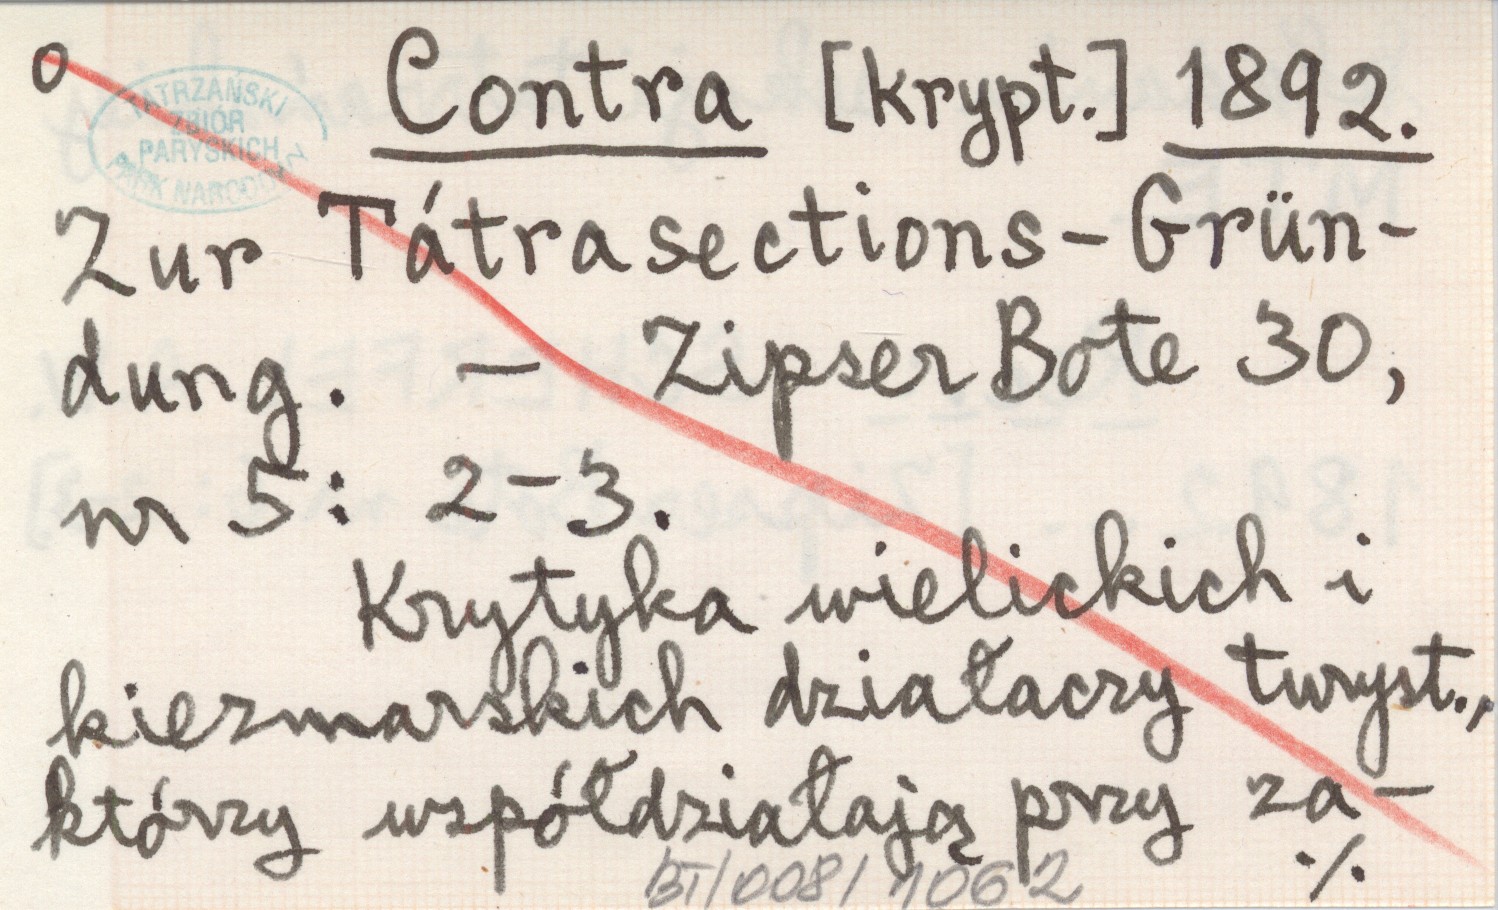 o Contra [krypt.] 1892.
TATRZAŃSKI
ZBIÓR
PARYSKICH
PARK NARODOWY
Zur Tátrasections-Grün-
dung. – Zipser Bote 30,
nr 5: 2-3.
Krytyka wielickich i
kiezmarskich działaczy turyst.,
którzy współdziałają przy za-
./.
BT/008/1062